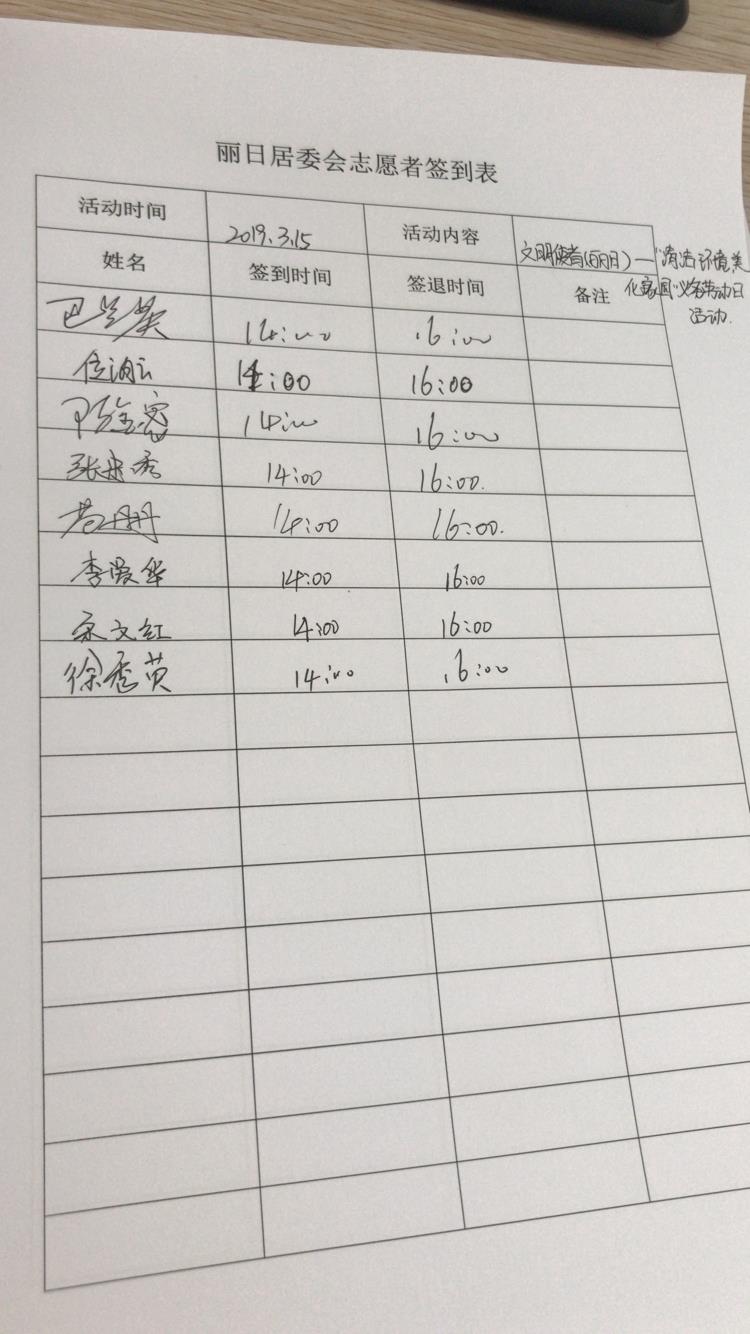 丽日居委会志愿者签到表
活动时间 2019.3.15 活动内容 文明使者(丽日)—"清洁环境美
化家园"义务劳动日
活动.
姓名 签到时间 签退时间 备注
14:00 16:00
14:00 16:00
14:00 16:00
张 秀 14:00 16:00.
丹丹 14:00 16:00.
李爱华 14:00 16:00
宋文红 14:00 16:00
徐秀英 14:00 16:00